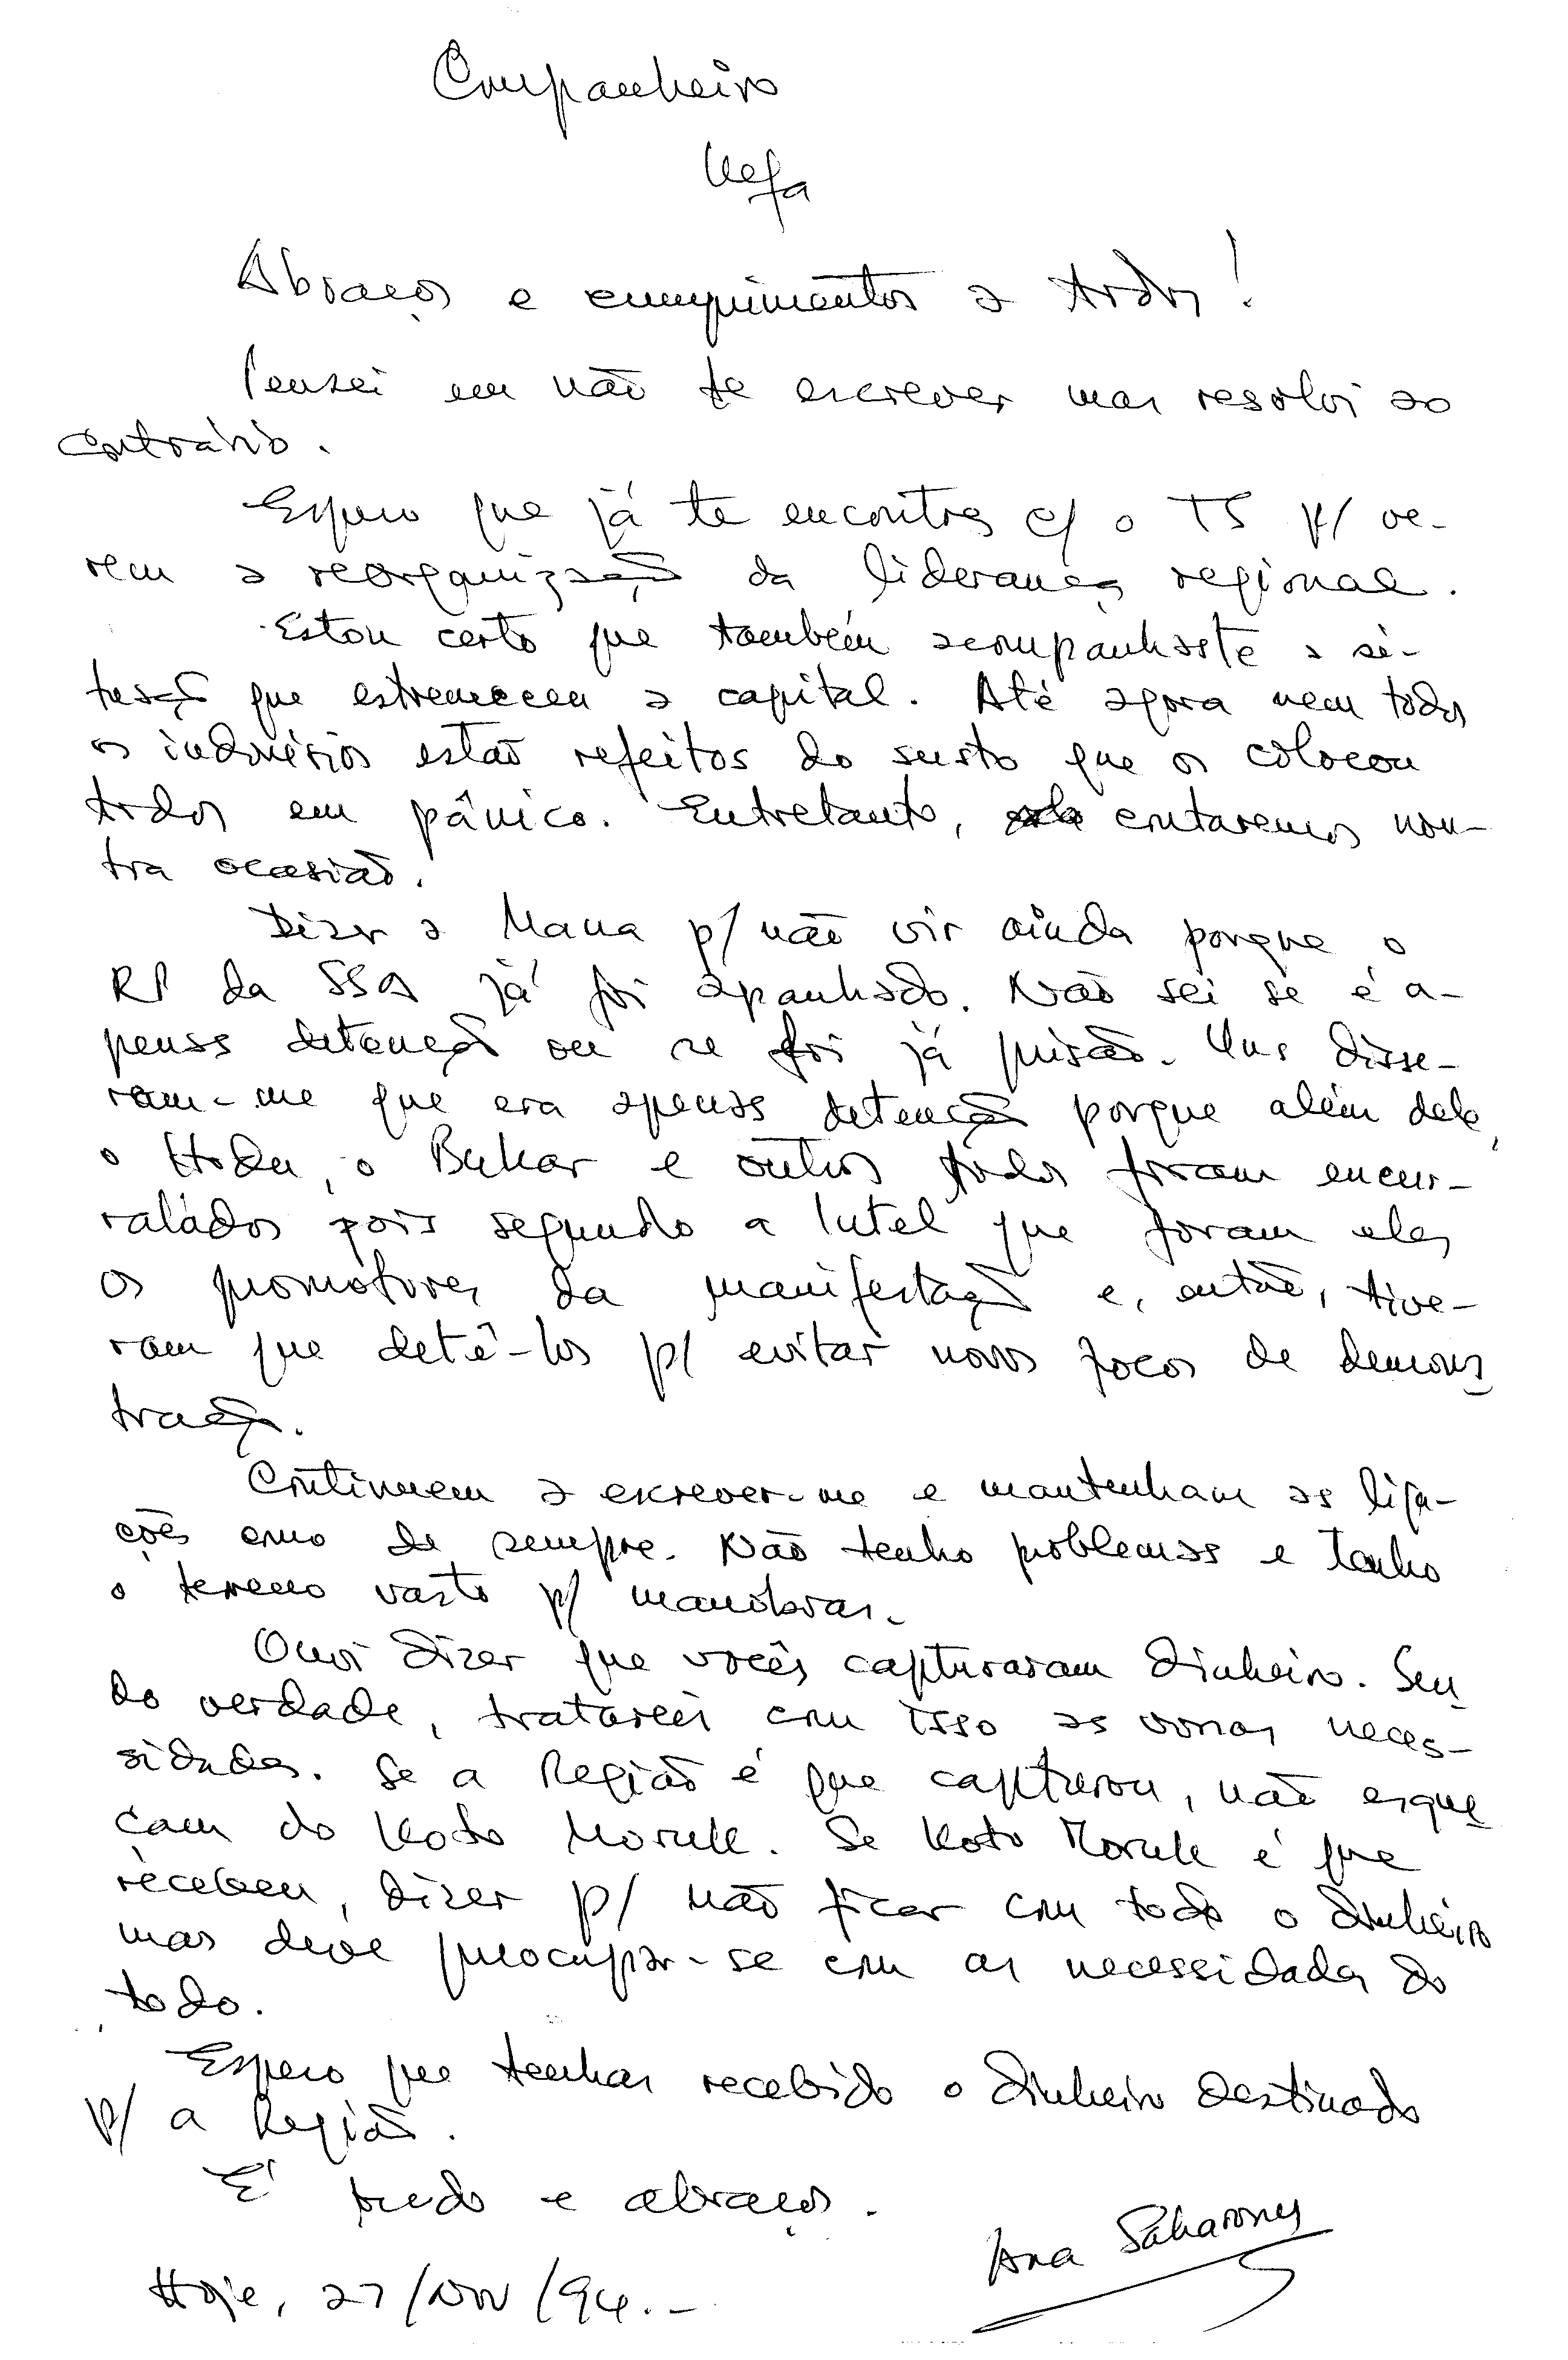 Companheiro
Uefa
Abraços e cumprimentos a todos!
Pensei em não te escrever mas resolvi ao
contrário.
Espero que já te encontres c/ o TS p/ ve-
rem a reorganização da liderança regional.
Estou certo que também acompanhaste a si-
tuação que estremeceu a capital. Até agora nem todos
os indonésios estão refeitos do susto que os colocou
todos em pânico. Entretanto, contaremos nou-
tra ocasião.
Dizer a Mana p/ não vir ainda porque o
RP da SSA já foi apanhado. Não sei se é a-
penas detenção ou se foi já prisão. Uns disse-
ram-me que era apenas detenção porque além dele,
o Hodu, o Bukar e outros todos foram encur-
ralados pois segundo a Intel que foram eles
os promotores da manifestação e, então, tive-
ram que detê-los p/ evitar novos focos de demons
tração.
Continuem a escrever-me e mantenham as liga-
ções como de sempre. Não tenho problemas e tenho
o terreno vasto p/ manobrar.
Ouvi dizer que vocês capturaram dinheiro. Sen
do verdade, tratarei com isso as vossas neces-
sidades. Se a Região é que capturou, não esque
çam do Koto Moruk. Se Koto Moruk é que
recebeu, dizer p/ não ficar com todo o dinheiro
mas deve preocupar-se com as necessidades do
todo.
Espero que tenhas recebido o dinheiro destinado
p/ a Região.
É tudo e abraços.
Ana Saharony
Hoje, 27/NOV/94.-